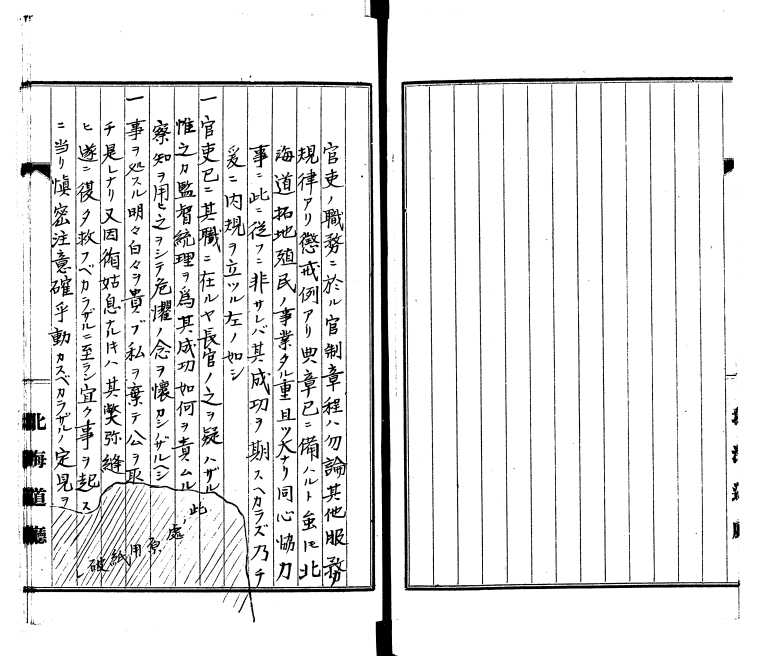 官吏ノ職務ニ於ル官制章程ハ勿論其他服務
規律アリ懲戒例アリ典章已ニ備ハルト虽モ北
海道拓地殖民ノ事業タル重且ツ大ナリ同心協力
事ニ此ニ従フニ非サレバ其成功ヲ期スヘカラズ乃チ
爰ニ内規ヲ立ツル左ノ如シ
一官吏已ニ其職ニ在ルヤ長官ノ之ヲ疑ハザル
惟之カ監督統理ヲ爲其成功如何ヲ責ムル
察知ヲ用ヒ之ヲシテ危懼ノ念ヲ懷カシムベ
一事ヲ処スル明々白々ヲ貴ブ私ヲ棄テ公ヲ取
チ是レナリ又因循姑息ナルトキハ其弊弥縫
ヒ遂ニ復タ救フベカラザルニ至ラン宜ク事ヲ起ス
ニ当リ愼密注意確乎動カスベカラザルノ定見ヲ
此処原用紙破レ
北海道廳